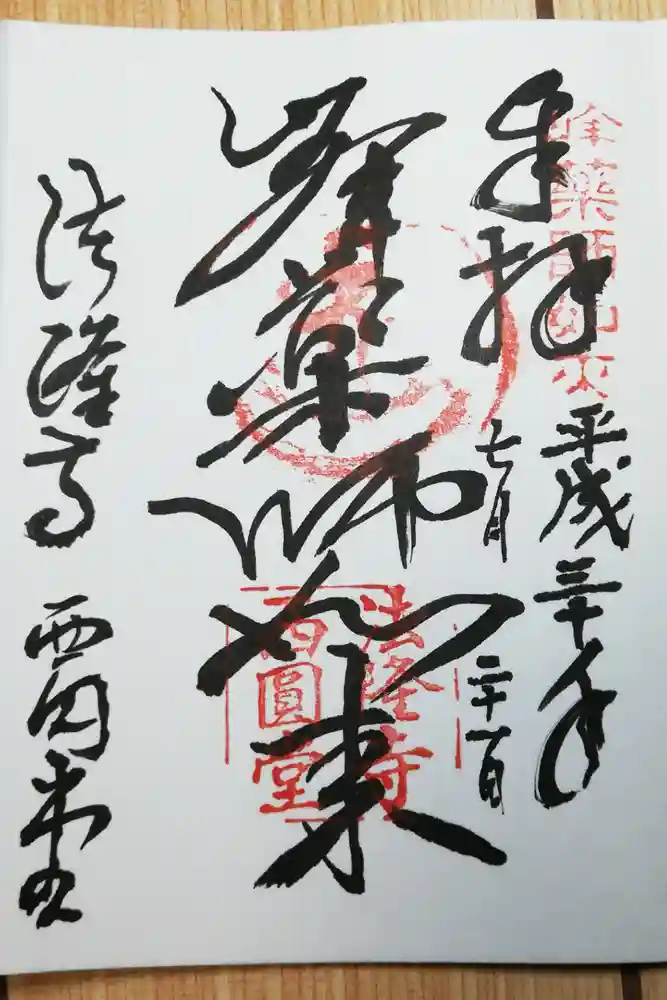 奉拝
平成三十年
七月二十一日
峰薬師如来
法隆寺 西円堂
峰藥師如来
法隆寺
西圓堂